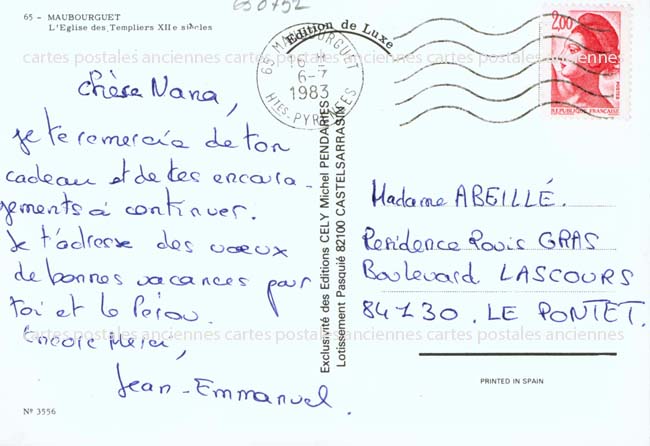 650752
65 - MAUBOURGUET
L'Eglise des Templiers XIIe siècles
Edition de Luxe
65 MAUBOURGUET
16 H
6-7
1983
HTES-PYRENEES
2,00
POSTES
REPUBLIQUE FRANÇAISE
cartes postales anciennes cartes postales anciennes cartes postales anciennes cartes postales anciennes
Chère Nana,
je te remercie de ton
cadeau et de tes encoura-
gements à continuer.
Je t'adresse des vœux
de bonnes vacances pour
toi et le
Encore Merci,
Jean-Emmanuel.
Exclusivité des Editions CELY Michel PENDARIES
Lotissement Pasquié 82100 CASTELSARRASIN
Madame ABEILLÉ.
Residence Louis GRAS
Boulevard LASCOURS
84130. LE PONTET.
cartes postales anciennes cartes postales anciennes cartes postales anciennes cartes postales anciennes
PRINTED IN SPAIN
Nº 3556